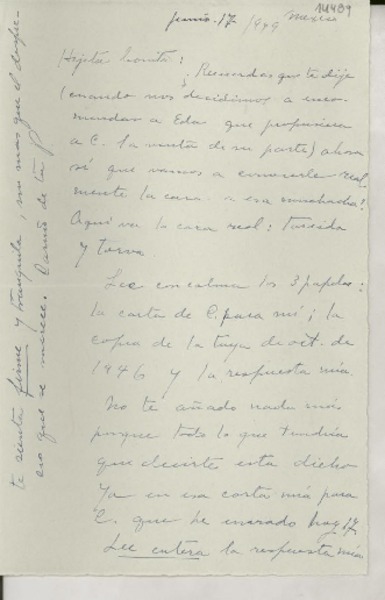 14489
junio. 17 / 949 Mexico
Hijita bonita:
¿Recuerdas que te dije
(cuando nos decidimos a enco-
mendar a Eda que propusiera
a C. la venta de su parte) ahora
sí que vamos a conocerle real-
mente la cara a esa muchacha?
Aquí va la cara real: torcida
y torva.
Lee con calma los 3 papeles:
la carta de C. para mí; la
copia de la tuya de oct. de
1946 y la respuesta mía.
No te añado nada más
porque todo lo que tendría
que decirte esta dicho
ya en esa carta mía para
C. que he enviado hoy 17.
Lee entera la respuesta mía
te sienta firme y tranquila, no mas que el despre-
cio que se merece. Cariño de tu